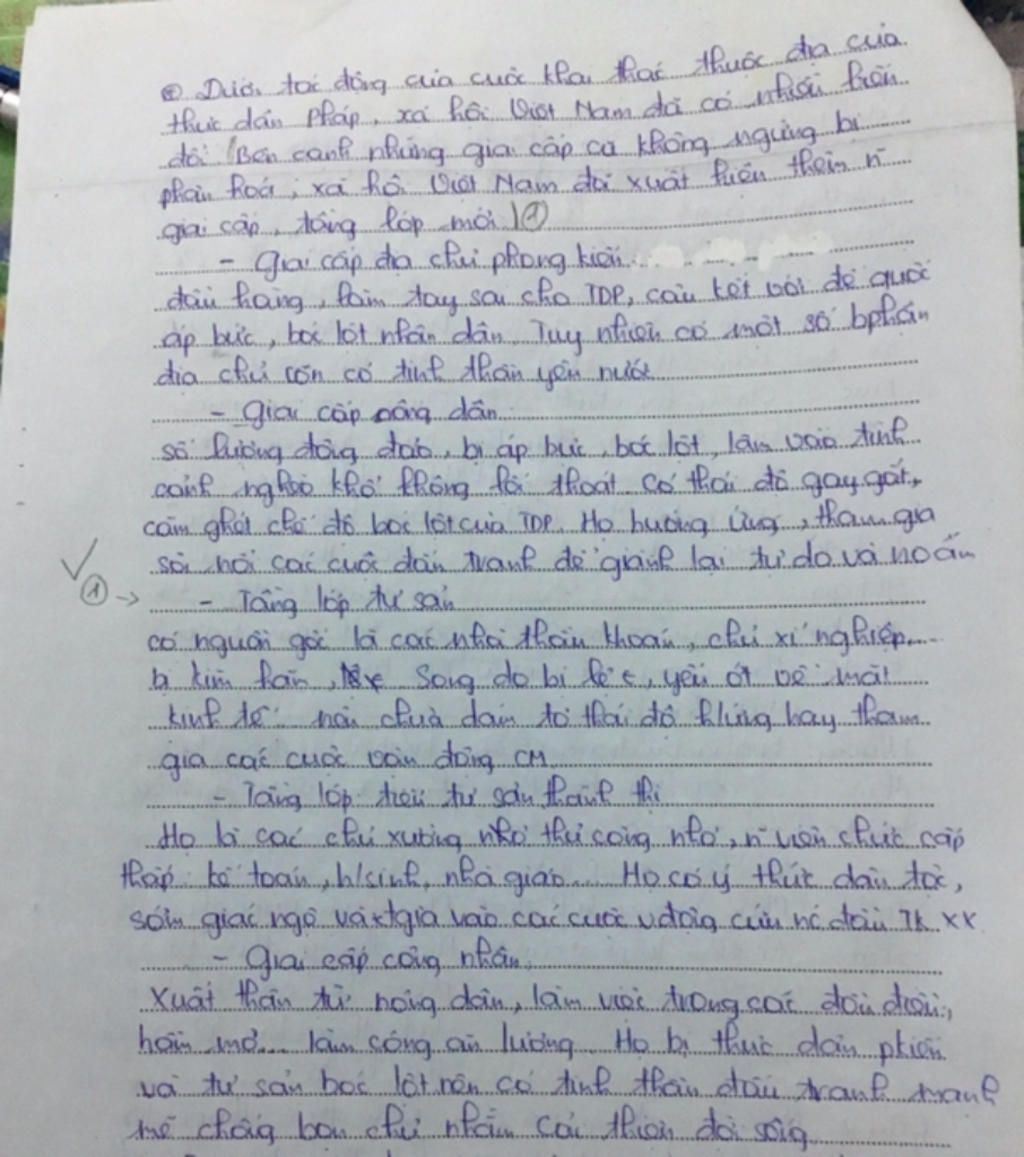 ⊕ Dưới tác động của cuộc khai thác thuộc địa của
thực dân Pháp, xã hội Việt Nam đã có nhiều biến
đổi. Bên cạnh những giai cấp cũ không ngừng bị
phân hoá, xã hội Việt Nam đã xuất hiện thêm n~
giai cấp, tầng lớp mới ①
- Giai cấp địa chủ phong kiến
đầu hàng, làm tay sai cho TDP, cấu kết với đế quốc
áp bức, bóc lột nhân dân. Tuy nhiên có một số bphận
địa chủ còn có tinh thần yêu nước
- Giai cấp nông dân
số lượng đông đảo, bị áp bức, bóc lột, lâm vào tình
cảnh nghèo khổ không lối thoát. Có thái độ gay gắt,
căm ghét chế độ bóc lột của TDP. Họ hưởng ứng, tham gia
sôi nổi các cuộc đấu tranh để giành lại tự do và no ấm
① → - Tầng lớp tư sản
có nguồn gốc là các nhà thầu khoán, chủ xí nghiệp...
bị kìm hãm, Song do bị lệ t, yếu ớt về mặt
kinh tế nên chưa dám tỏ thái độ hưởng hay tham
gia các cuộc vận động CM
- Tầng lớp tiểu tư sản thành thị
Họ là các chủ xưởng nhỏ thủ công nhỏ, n~ viên chức cấp
thấp kế toán, h/sinh, nhà giáo... Họ có ý thức dân tộc,
sớm giác ngộ và tgia vào các cuộc vđộng cứu nc đầu TK XX
- Giai cấp công nhân
Xuất thân từ nông dân, làm việc trong các đồn điền,
hầm mỏ... làm công ăn lương. Họ bị thực dân pkiến
và tư sản bóc lột nên có tinh thần đấu tranh mạnh
mẽ chống bọn chủ nhằm cải thiện đời sống